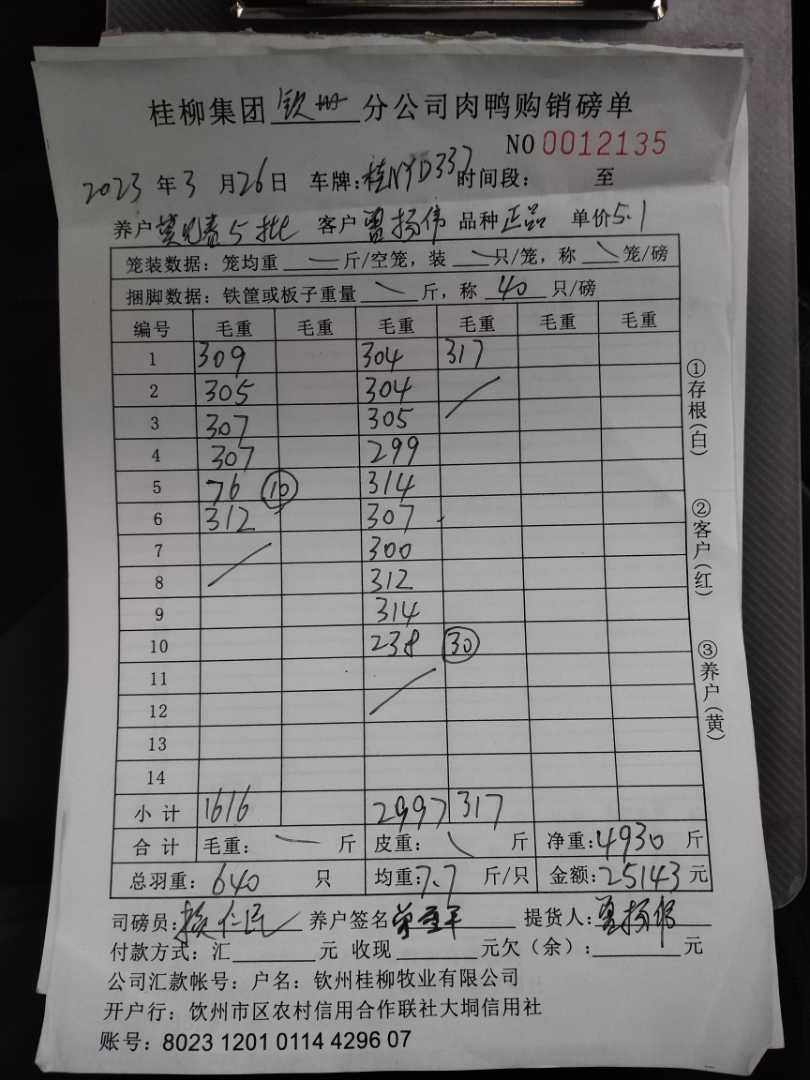 桂柳集团 钦州 分公司肉鸭购销磅单
NO 0012135
2023 年 3 月 26 日 车牌: 桂NYD337 时间段: 至
养户 5批 客户 扬伟 品种 正品 单价 5.1
笼装数据: 笼均重 斤/空笼, 装 只/笼, 称 笼/磅
捆脚数据: 铁筐或板子重量 斤, 称 40 只/磅
编号 毛重 毛重 毛重 毛重 毛重 毛重
1 309 304 317
2 305 304
3 307 305
4 307 299
5 76 10 314
6 312 307
7 300
8 312
9 314
10 238 30
11
12
13
14
小计 1616 2997 317
合计 毛重: 斤 皮重: 斤 净重: 4930 斤
总羽重: 640 只 均重: 7.7 斤/只 金额: 25143 元
司磅员: 仁民 养户签名 提货人: 扬伟
付款方式: 汇 元 收现 元欠(余): 元
公司汇款帐号: 户名: 钦州桂柳牧业有限公司
开户行: 饮州市区农村信用合作联社大垌信用社
账号: 8023 1201 0114 4296 07
①存根(白)
②客户(红)
③养户(黄)